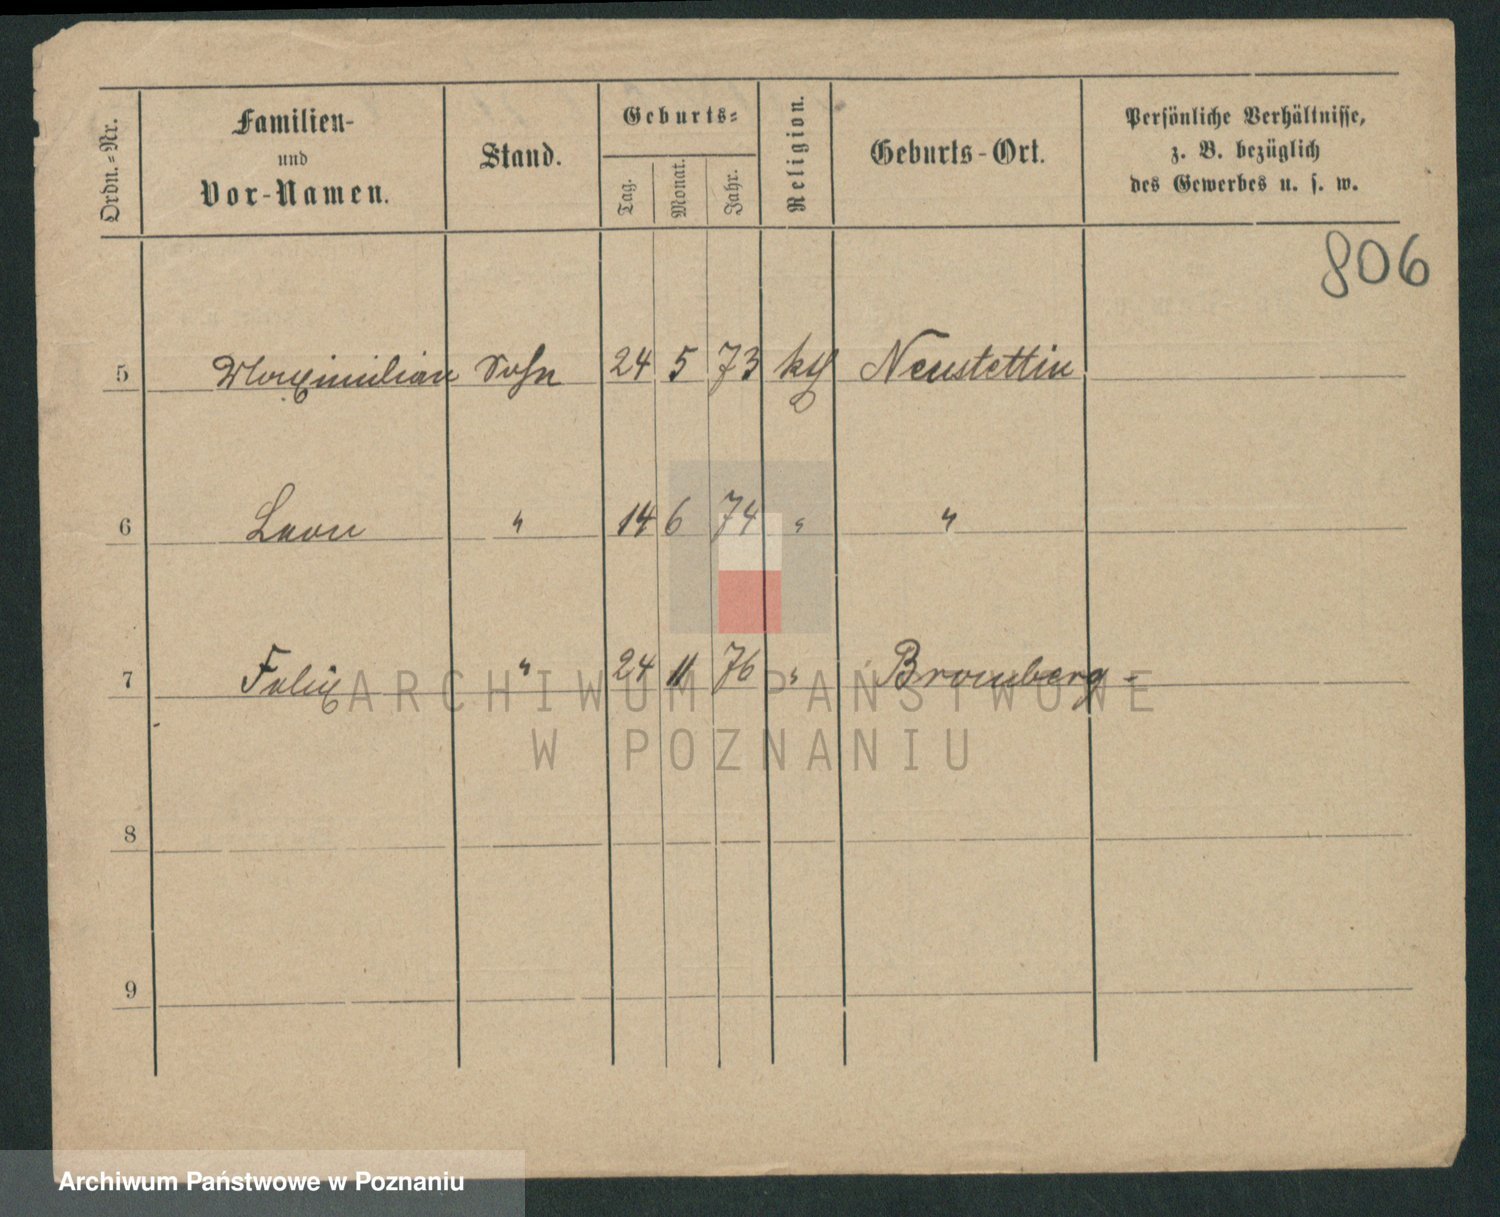 Ordn.-Nr.
Familien-
und
Vor-Namen.
Stand.
Geburts-
Tag.
Monat.
Jahr.
Religion.
Geburts-Ort.
Persönliche Verhältnisse,
z. B. bezüglich
des Gewerbes u. s. w.
806
5 Maximilian Sohn 24 5 73 kth Neustettin
6 Leon " 14 6 74 " "
7 Felix " 24 11 76 " Bromberg -
ARCHIWUM PAŃSTWOWE
W POZNANIU
8
9
Archiwum Państwowe w Poznaniu